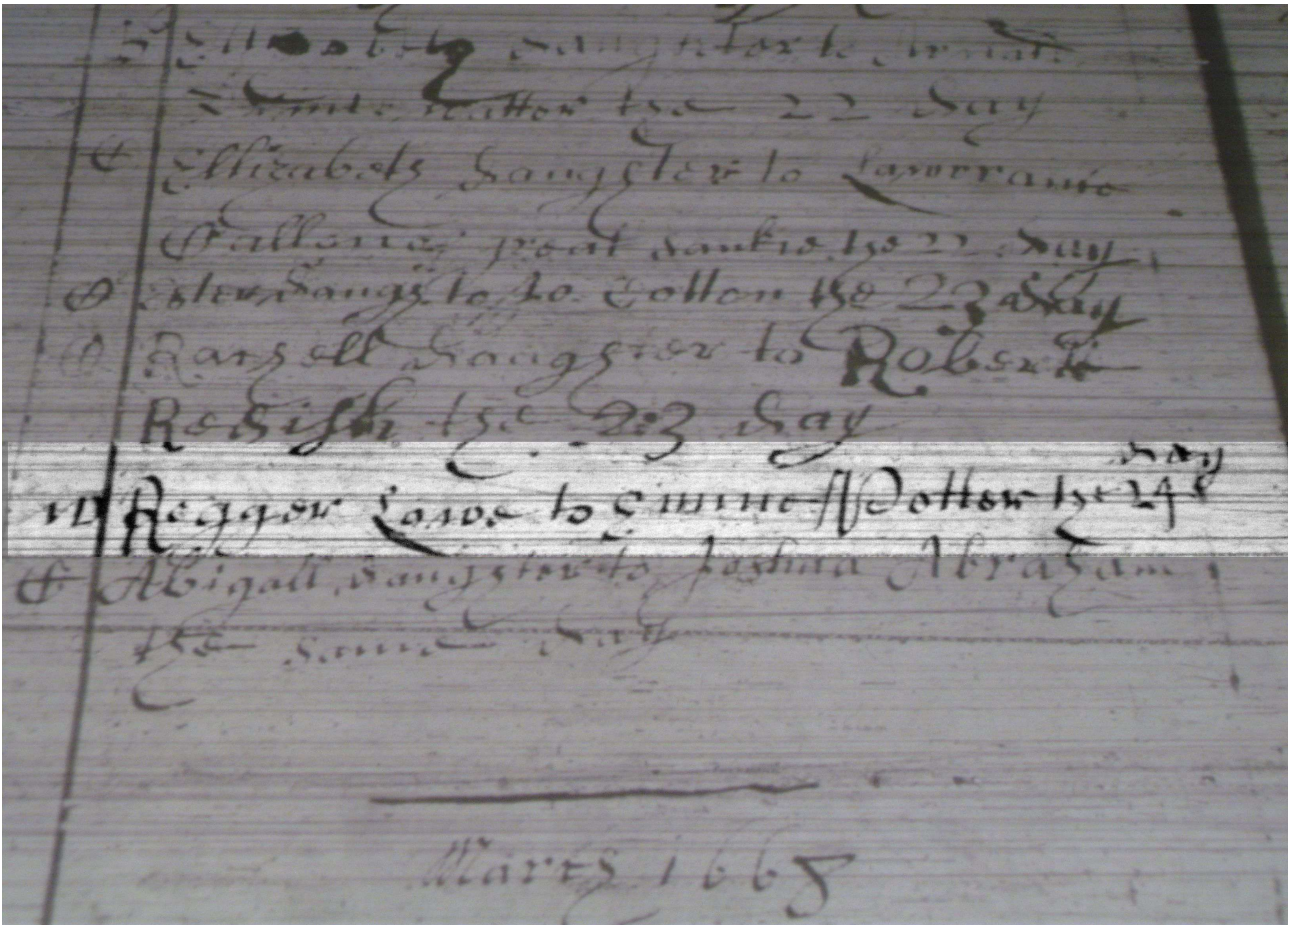 daughter to
the 22 day
C Ellizabeth daughter to Lawrrance
great sankie the 22 day
ester daught to Jo Cotton the 23 day
Rachell daughter to Roberte
Redish the 23 day
W Regger Lowe to Emme Potter the 24 day
C Abigall daughter to Joshua Abraham
the same day
March 1668